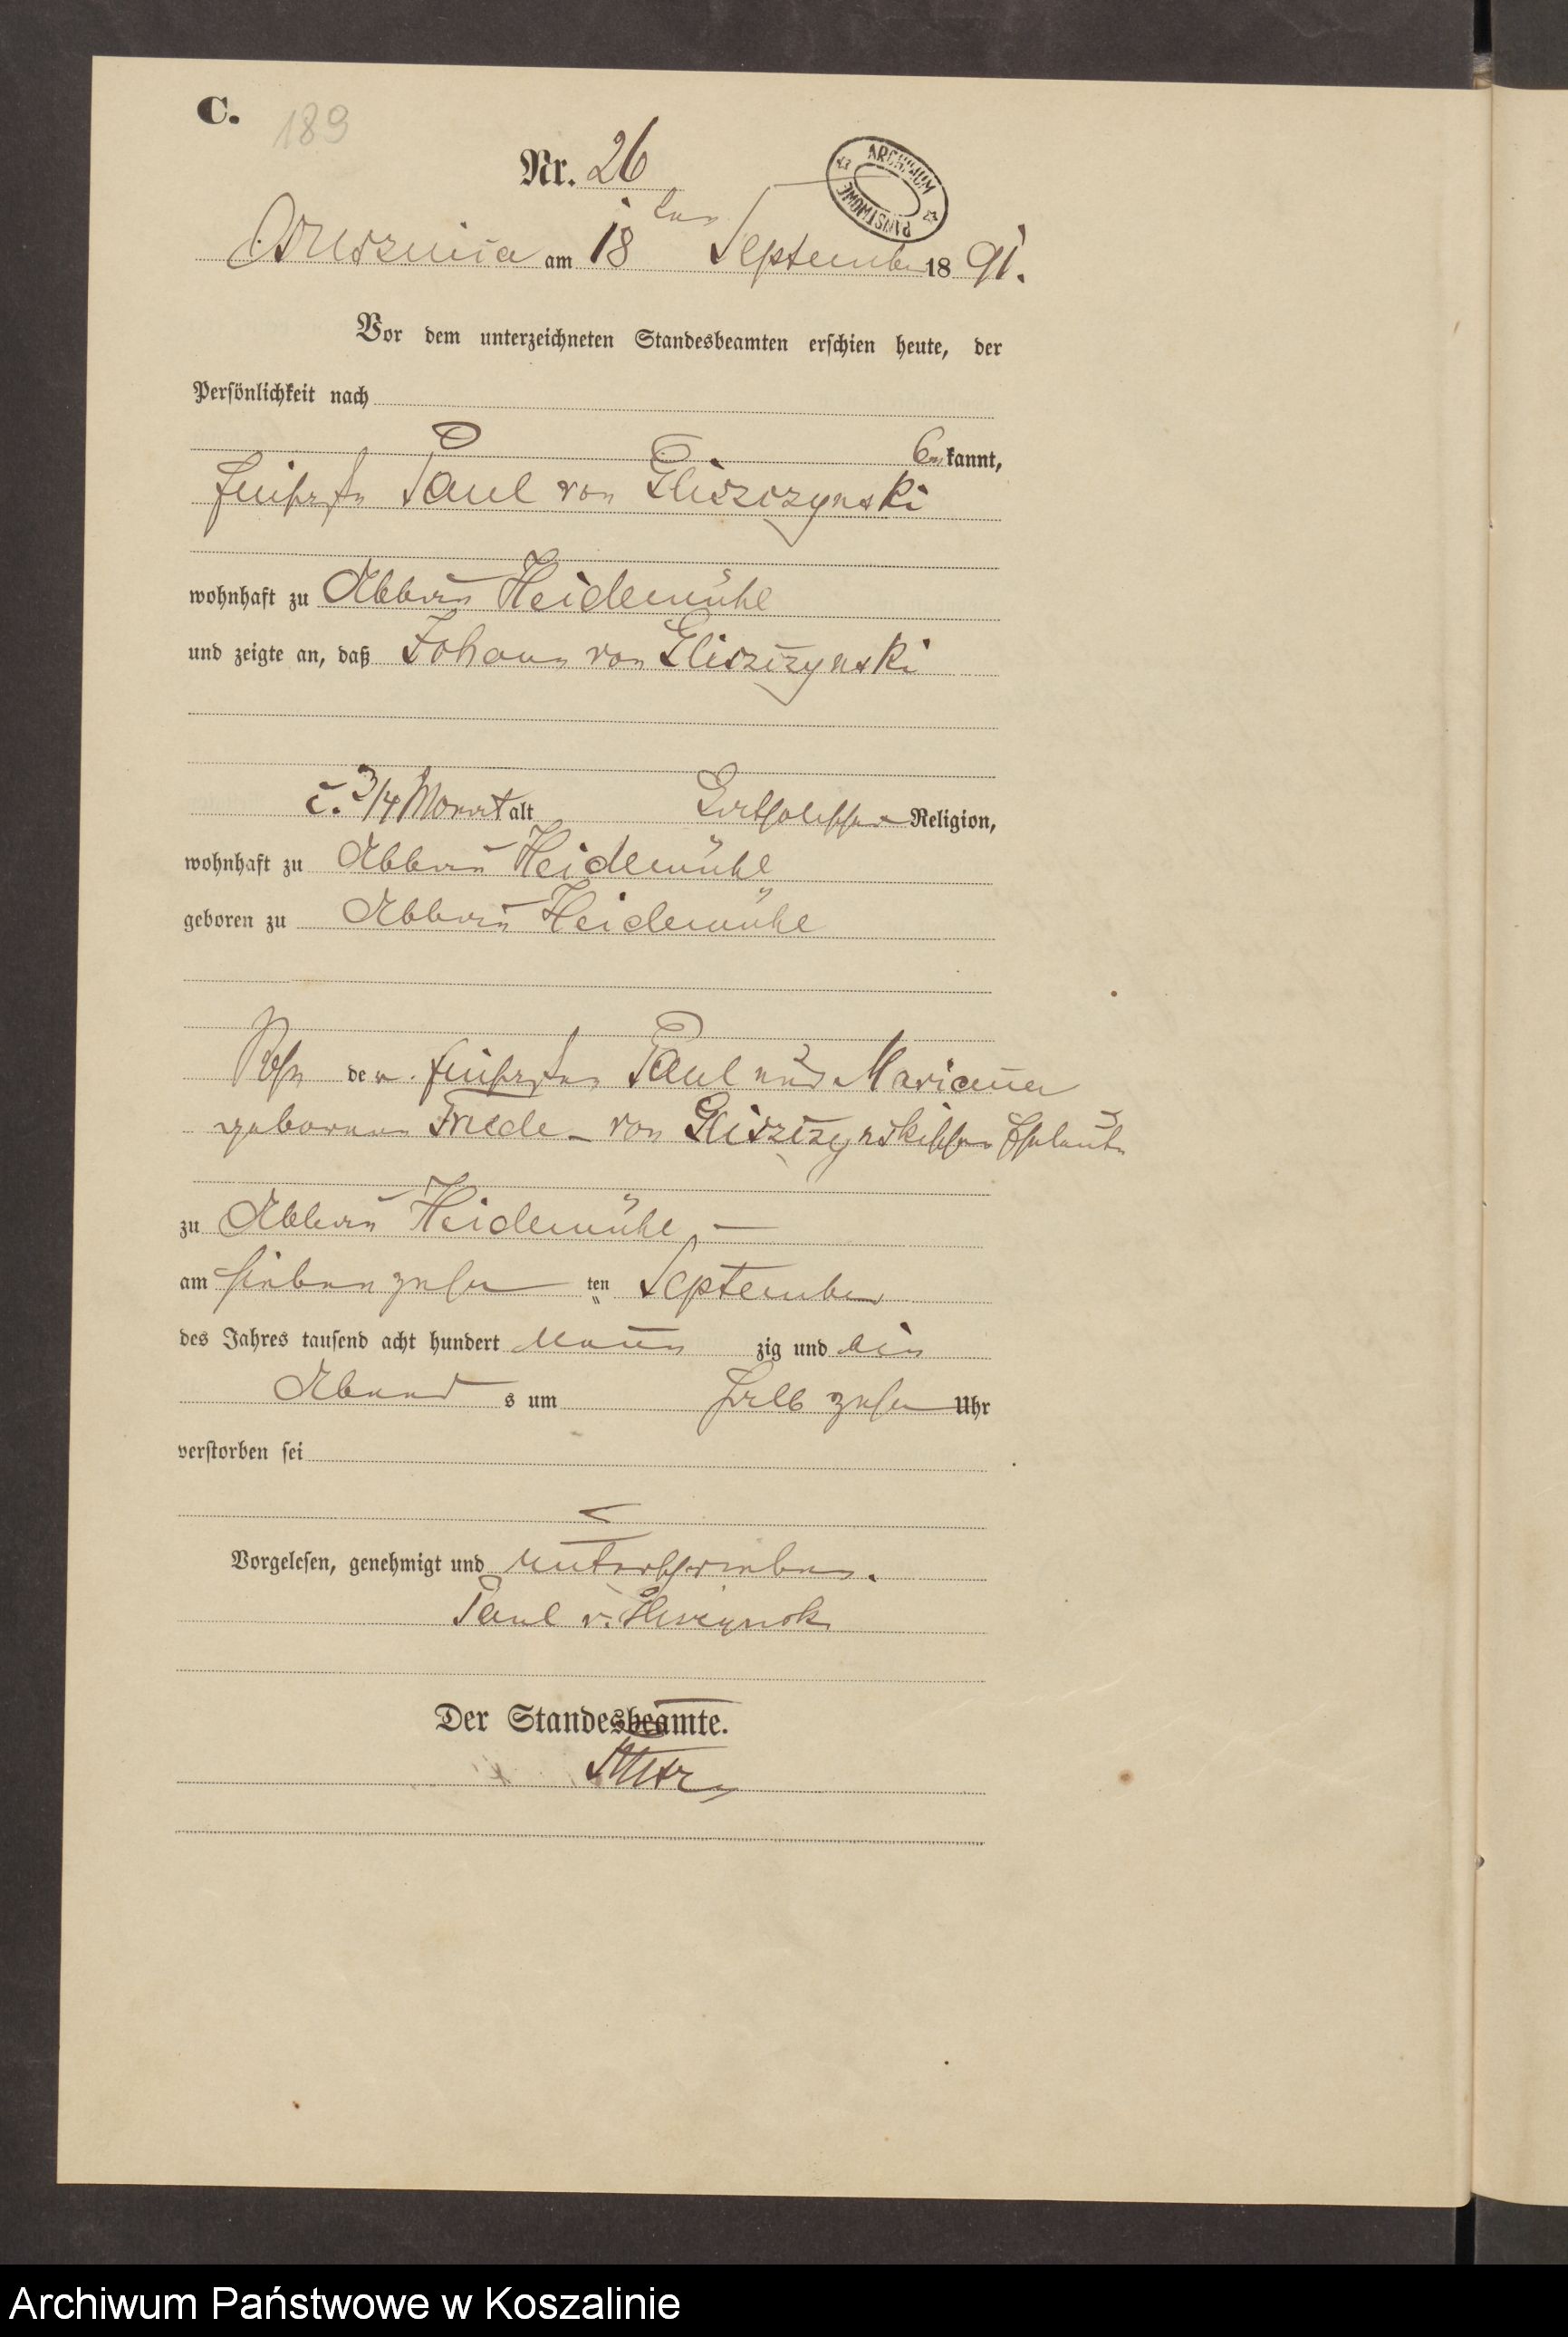 C. 189
Nr. 26
ARCHIWUM PAŃSTWOWE
am 18ten September 1891.
Vor dem unterzeichneten Standesbeamten erschien heute, der
Persönlichkeit nach
bekannt,
Paul von Gliszczynski
wohnhaft zu Abbau Heidemühl
und zeigte an, daß Johann von Gliszczynski
c. 3/4 Monat alt Katholischer Religion,
wohnhaft zu Abbau Heidemühl
geboren zu Abbau Heidemühl
Sohn der Paul und Marianna
geborenen von Gliszczynskischen Eheleute
zu Abbau Heidemühl —
am siebenzehn ten September
des Jahres tausend acht hundert neun zig und ein
Abend s um halb zehn Uhr
verstorben sei
Vorgelesen, genehmigt und unterschrieben.
Paul v.
Der Standesbeamte.
Archiwum Państwowe w Koszalinie